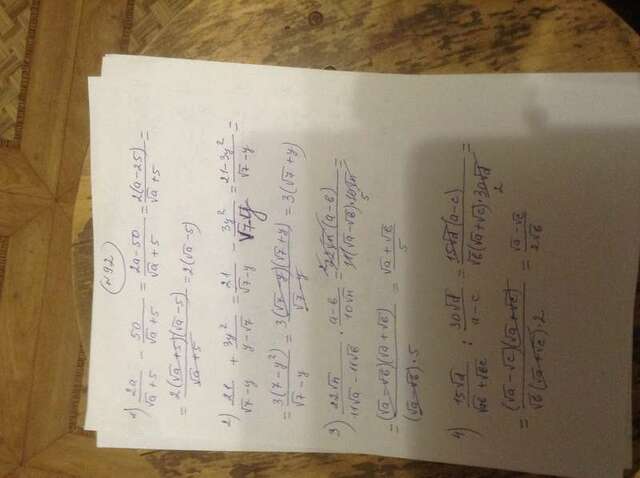 №92
1) 2a/(√a+5) - 50/(√a+5) = (2a-50)/(√a+5) = 2(a-25)/(√a+5) =
= 2(√a+5)(√a-5)/(√a+5) = 2(√a-5)
2) 21/(√7-y) + 3y²/(y-√7) = 21/(√7-y) - 3y²/(√7-y) = (21-3y²)/(√7-y) =
= 3(7-y²)/(√7-y) = 3(√7-y)(√7+y)/(√7-y) = 3(√7+y)
3) 22√n/(11√a-11√b) · (a-b)/(10√n) = 22√n(a-b)/(11(√a-√b)·10√n) =
= (√a-√b)(√a+√b)/((√a-√b)·5) = (√a+√b)/5
4) 15√d/(√ab+√bc) : 30√d/(a-c) = 15√d(a-c)/(√b(√a+√c)·30√d) =
= (√a-√c)(√a+√c)/(√b(√a+√c)·2) = (√a-√c)/(2√b)